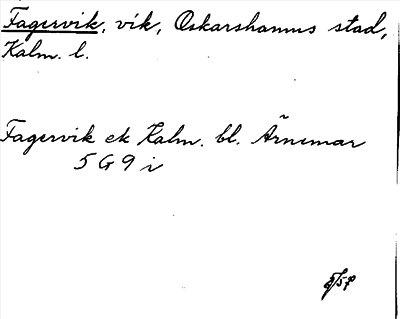 Fagervik, vik, Oskarshamns stad,
Kalm. l.
Fagervik ek Kalm. bl. Ärnemar
5 G 9 i